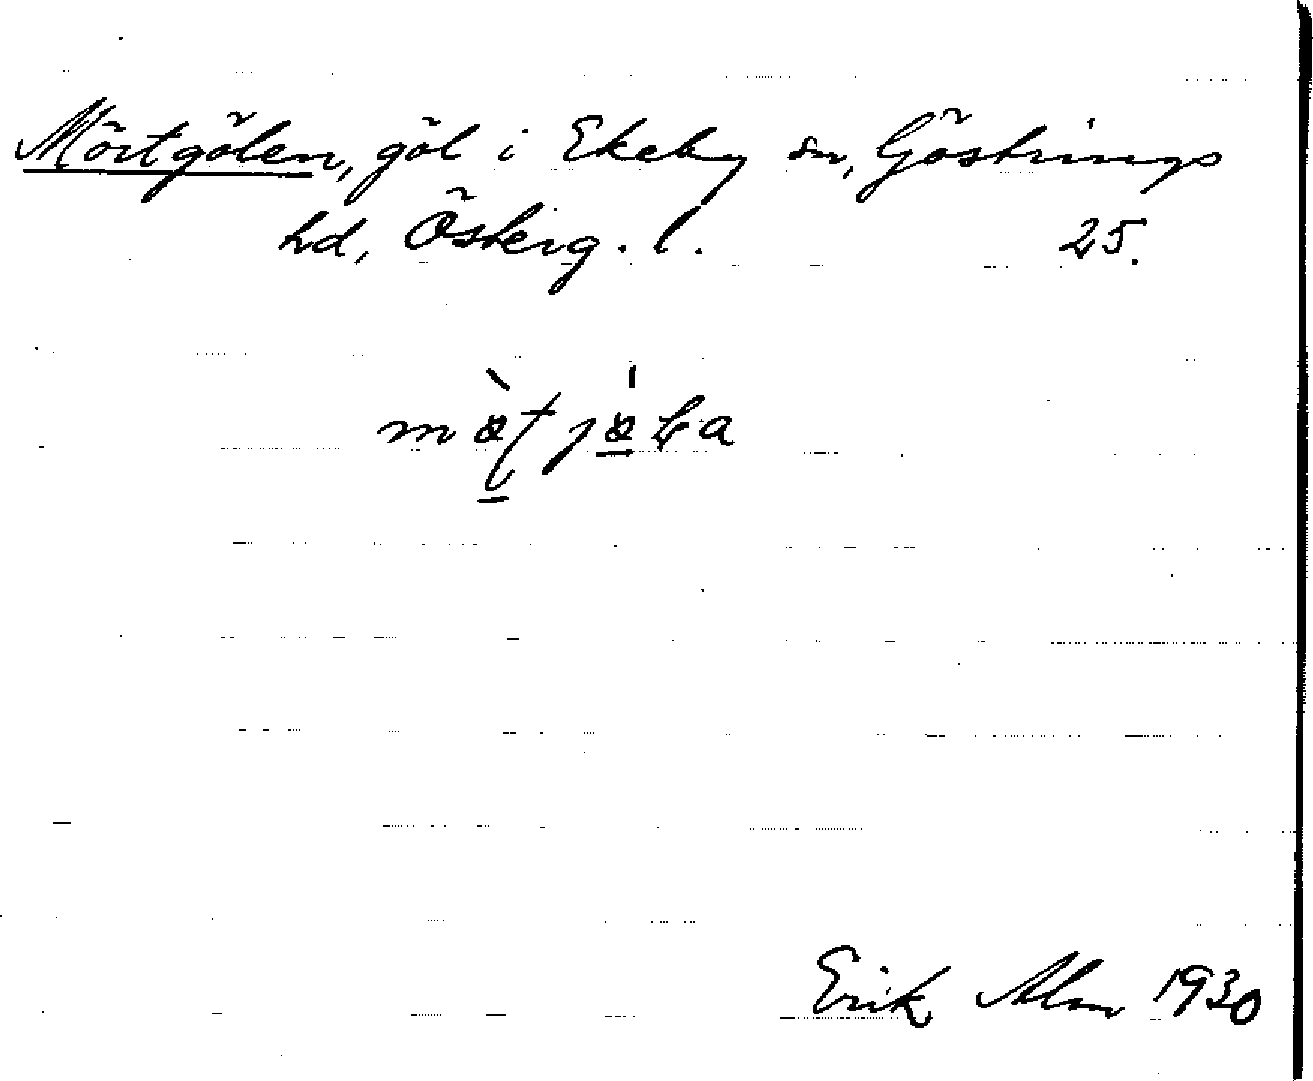 Mörtgölen, göl i Ekeby sn, Göstrings
hd, Österg. l. 25.
Erik Alm 1930